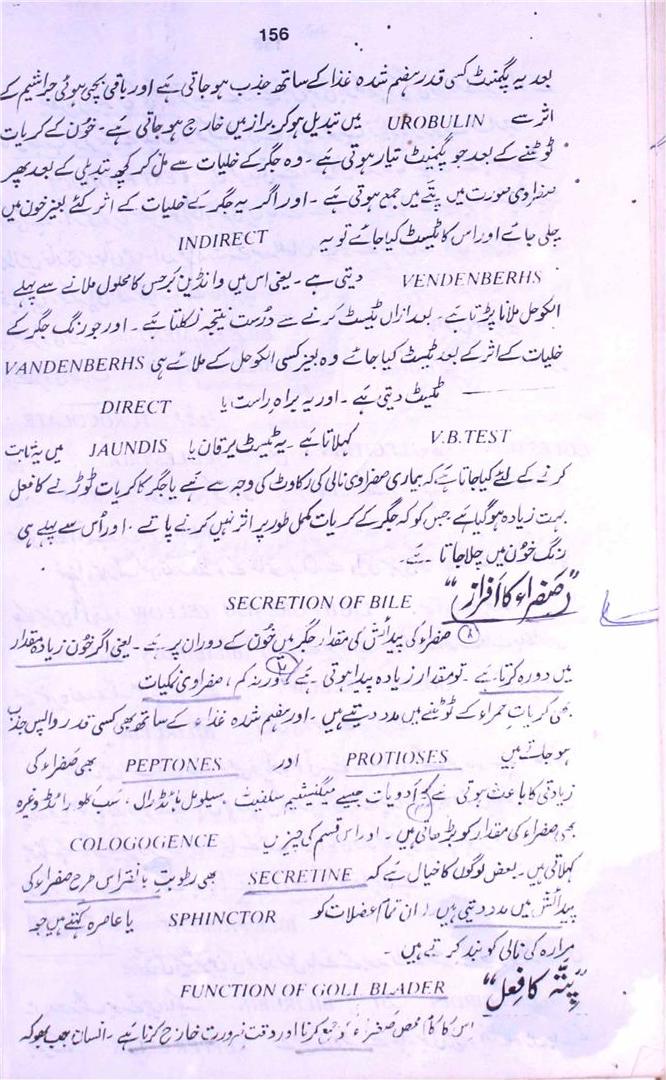 156
بعد یہ پگمنٹ کسی قدر ہضم شدہ غذا کے ساتھ جذب ہو جاتی ہے اور باقی بچی ہوئی جراثیم کے
اثر سے UROBULIN میں تبدیل ہو کر براز میں خارج ہو جاتی ہے۔ خون کے کریات
ٹوٹنے کے بعد جو پگمنٹ تیار ہوتی ہے۔ وہ جگر کے خلیات سے مل کر کچھ تبدیلی کے بعد پھر
صفراوی صورت میں پتے میں جمع ہوتی ہے۔ اور اگر یہ جگر کے خلیات کے اثر کئے بغیر خون میں
چلی جائے اور اس کا ٹیسٹ کیا جائے تو یہ INDIRECT
VENDENBERHS دیتی ہے۔ یعنی اس میں وانڈین برجس کا محلول ملانے سے پہلے
الکوحل ملانا پڑتا ہے۔ بعد ازاں ٹیسٹ کرنے سے درست نتیجہ نکلتا ہے۔ اور جو رنگ جگر کے
خلیات کے اثر کے بعد ٹیسٹ کیا جائے وہ بغیر کسی الکوحل کے ملائے ہی VANDENBERHS
ٹیسٹ دیتی ہے۔ اور یہ براہ راست یا DIRECT
V.B.TEST کہلاتا ہے۔ یہ ٹیسٹ یرقان یا JAUNDIS میں یہ ثابت
کرنے کے لئے کیا جاتا ہے کہ بیماری صفراوی نالی کی رکاوٹ کی وجہ سے ہے یا جگر کا کریات توڑنے کا فعل
بہت زیادہ ہو گیا ہے جس کو کہ جگر کے کریات مکمل طور پر اثر نہیں کرنے پاتے۔ اور اس سے پہلے ہی
رنگ خون میں چلا جاتا ہے
”صفراء کا افراز“ SECRETION OF BILE
۱ صفراء کی پیدائش کی مقدار جگر میں خون کے دوران پر ہے۔ یعنی اگر خون زیادہ مقدار
میں دورہ کرتا ہے۔ تو مقدار زیادہ پیدا ہوتی ہے ورنہ کم، ۲ صفراوی نمکیات
بھی کریات حمراء کے ٹوٹنے میں مدد دیتے ہیں۔ اور ہضم شدہ غذاء کے ساتھ بھی کسی قدر واپس جذب
ہو جاتے ہیں PROTIOSES اور PEPTONES بھی صفراء کی
زیادتی کا باعث ہوتی ہے ۳ ادویات جیسے میگنیشیم سلفیٹ وغیرہ
بھی صفراء کی مقدار کو بڑھاتی ہیں۔ اور اس قسم کی چیزیں COLOGOGENCE
کہلاتی ہیں۔ بعض لوگوں کا خیال ہے کہ SECRETINE بھی رطوبت یا افراس طرح صفراء کی
پیدائش میں مدد دیتی ہیں۔ ان تمام عضلات کو SPHINCTOR یا عاصرہ کہتے ہیں جو
مرارہ کی نالی کو بند کرتے ہیں۔
”پتہ کا فعل“ FUNCTION OF GOLL BLADER
اس کا کام محض صفراء کو جمع کرنا اور وقت ضرورت خارج کرنا ہے۔ انسان جب بھوکہ